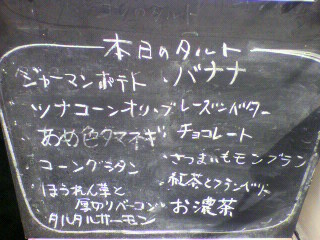 本日のタルト
ジャーマンポテト
・バナナ
ツナコーンオリーブ
・レーズンバター
あめ色タマネギ
チョコレート
・コーングラタン
・さつまいもモンブラン
・ほうれん草と
厚切りベーコン
・紅茶とフランボワーズ
タルタルサーモン
・お濃茶